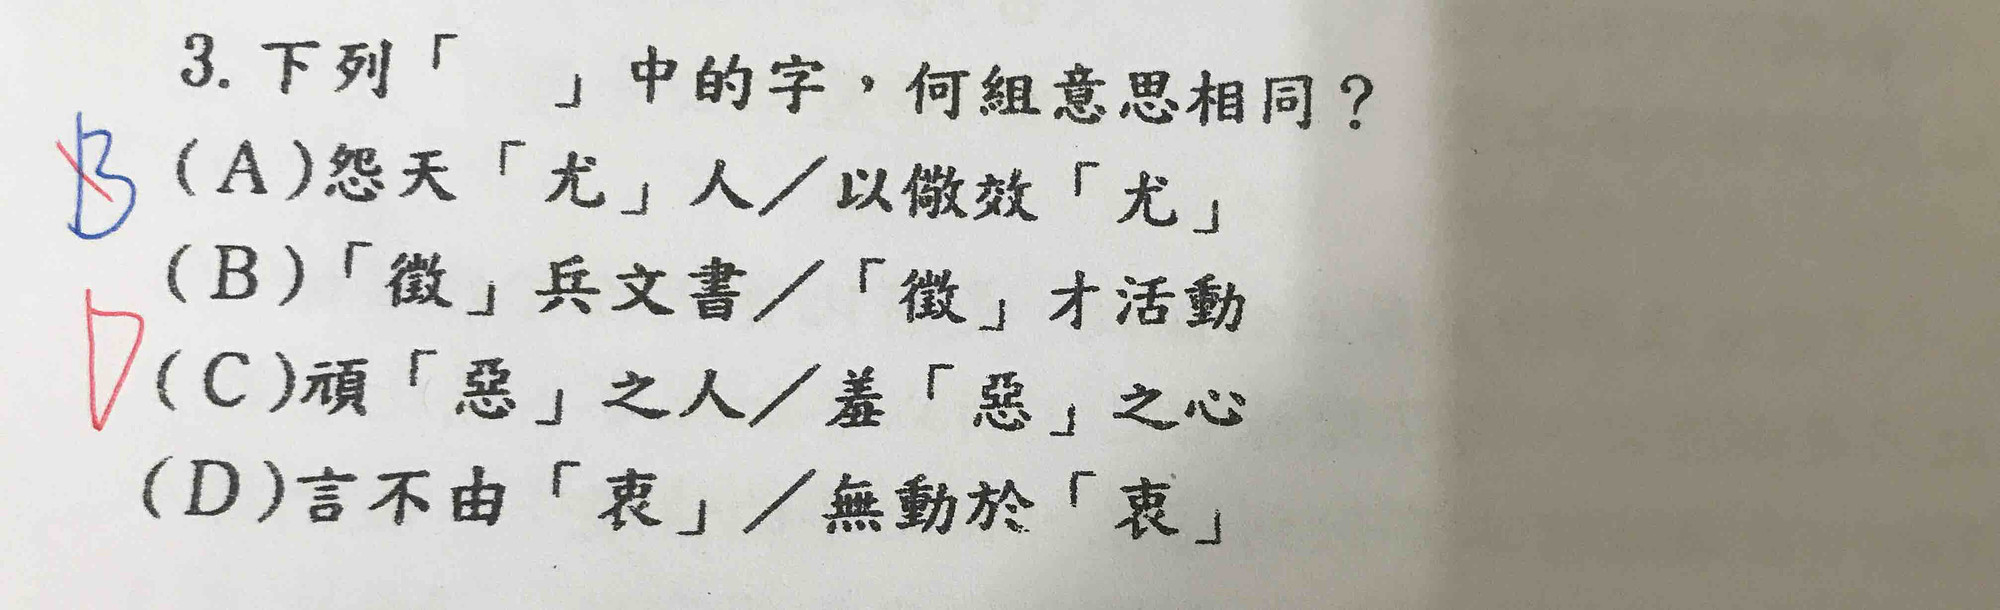 3. 下列「　」中的字，何組意思相同？
B (A)怨天「尤」人／以儆效「尤」
(B)「徵」兵文書／「徵」才活動
D (C)頑「惡」之人／羞「惡」之心
(D)言不由「衷」／無動於「衷」